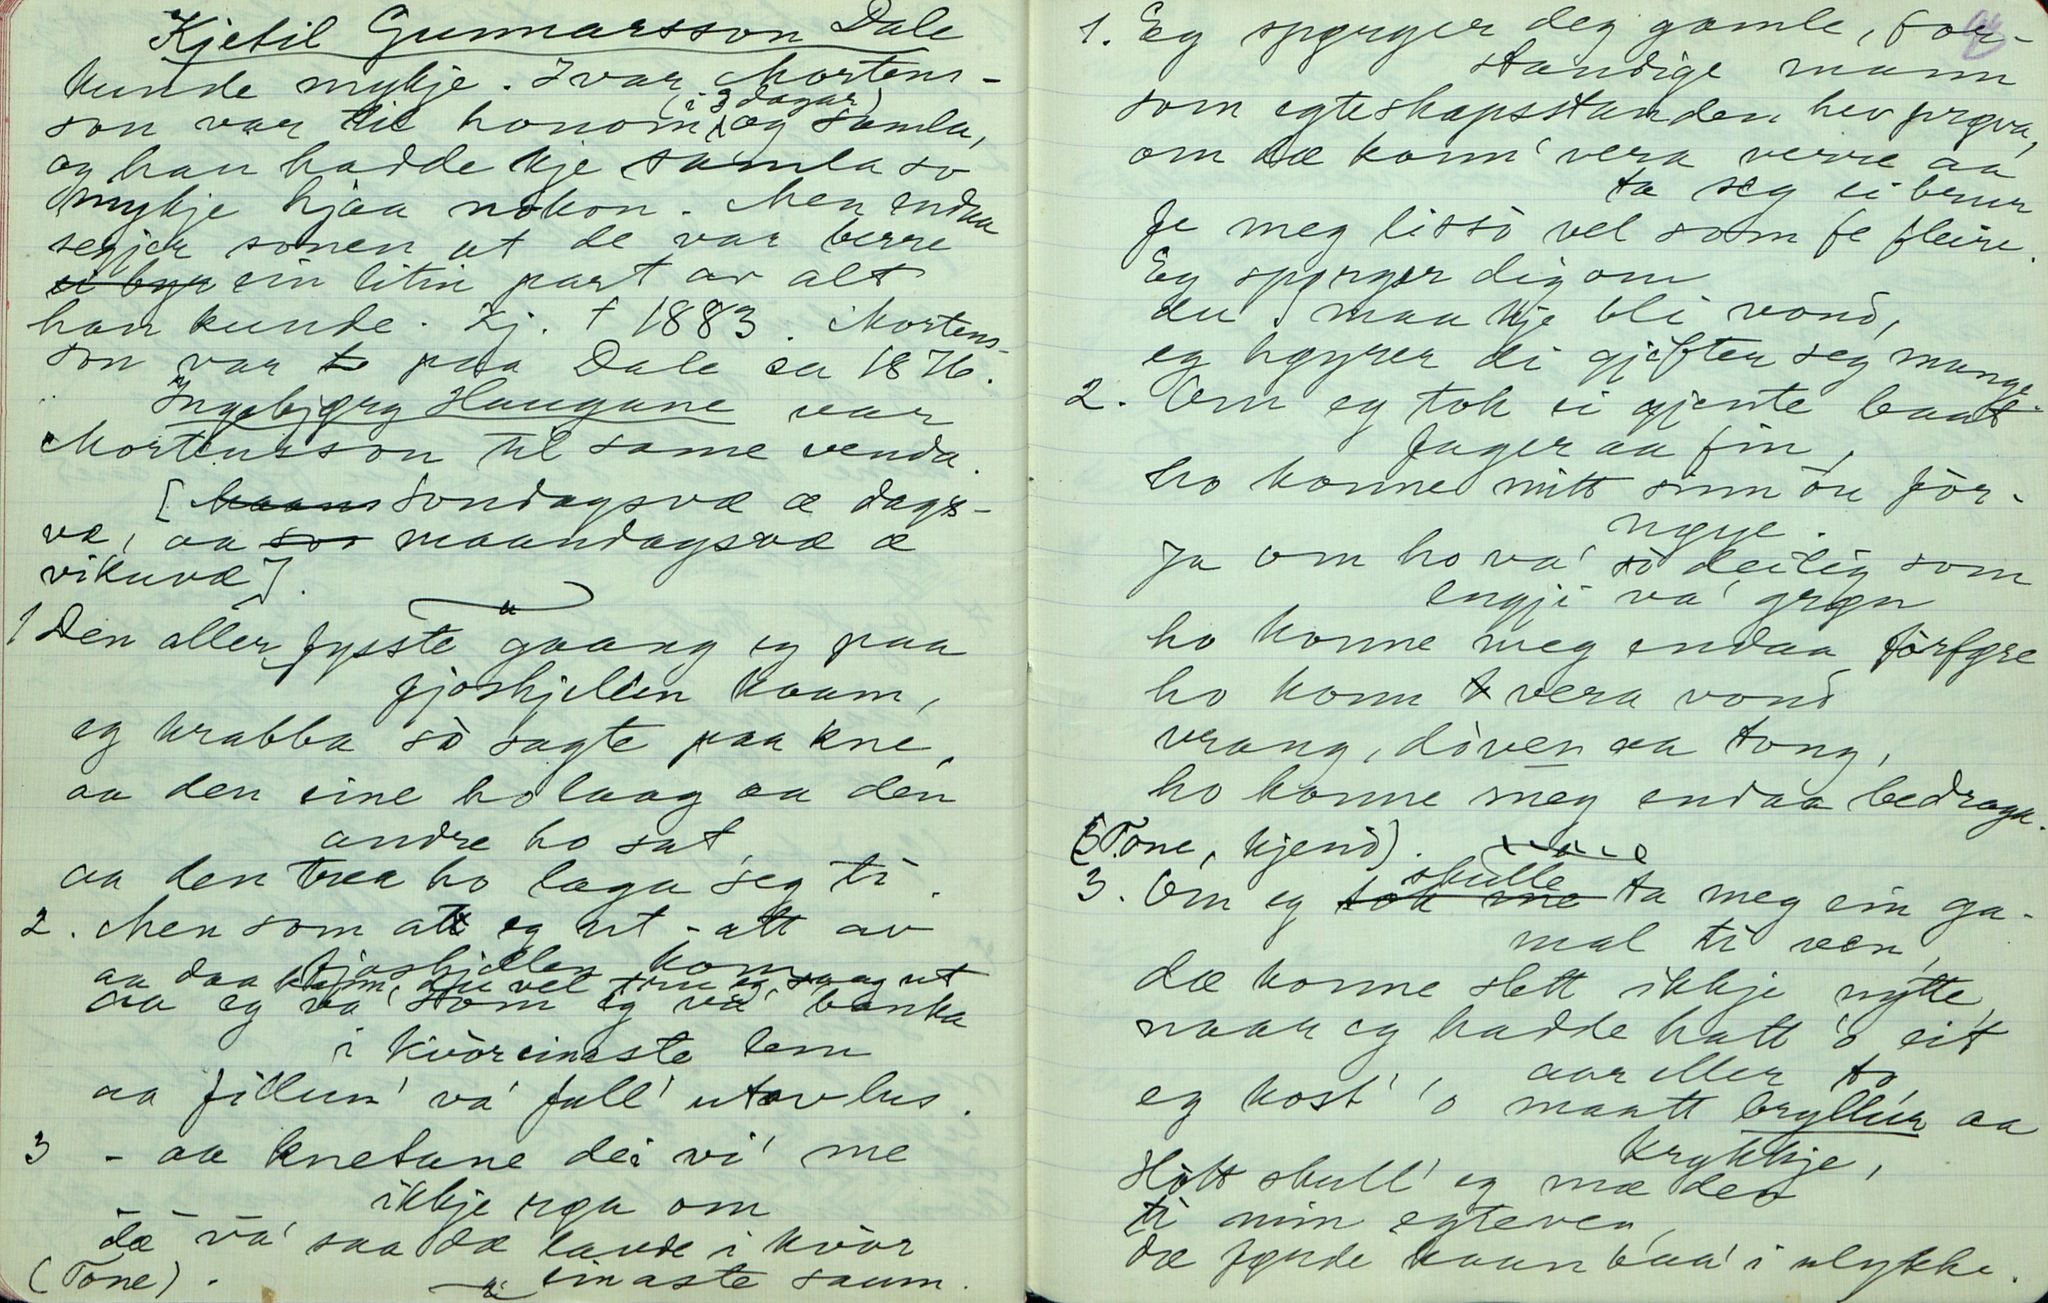 Kjetil Gunnarsson Dale
kunde mykje. Ivar Mortens-
son var til honom (i 3 dagar) og samla,
og han hadde kje samla so
mykje hjaa nokon. Men endaa
segjer sonen at de var berre
ei byr ein litin part av alt
han kunde. Kj. † 1883. Mortens-
son var to paa Dale ca 1876.
Ingebjørg Haugane var
Mortensson til same venda.
[ sondagsvæ æ dags-
væ, aa maandagsvæ æ
vikuvæ].
1 Den aller fysste gaang eg paa
fjoshjellen kaam,
eg krabba sò sagte paa kne,
aa den eine ho laag aa den
andre ho sat,
aa den trea ho laga seg ti.
2. Men som at eg ut-att av
fjoshjellen kom
aa daa saag ut
aa eg va' som eg va' banka
i kvòreinaste lem
aa fillun' va' full' utav lus.
3 - aa knetane dei vi' me
ikkje røa om
dæ va' saa dæ lavde i kvòr
einaste saum.
(Tone).
1. Eg spørger deg gamle, for-
standige mann
som egteskapsstanden hev prøva,
om dæ konn' vera verre aa
ta seg ei brur
fe meg lissò vel som fe fleire.
Eg spørger dig om
du maa kje bli vond,
eg høyrer di gjifter seg mange.
2. Om eg tok ei gjente baat
fager aa fin,
ho konne mitt sinn òu fòr-
nøye.
Ja om ho va' sò deilig som
engji va' grøn
ho konne meg endaa fòrføre
ho konn vera vond
vrang, dòven aa tong,
ho konne meg endaa bedraga.
(Tone, kjend).
3. Om eg tok me skulle ta meg ein ga-
mal ti ven,
dæ konne slett ikkje nytte,
naar eg hadde hatt 'o eit
aar eller to,
eg kost' 'o maatt bryllur aa
krykkje,
Hòtt skull' eg mæ den
ti min egteven,
dæ førde kaan b'aa' i ulykke.